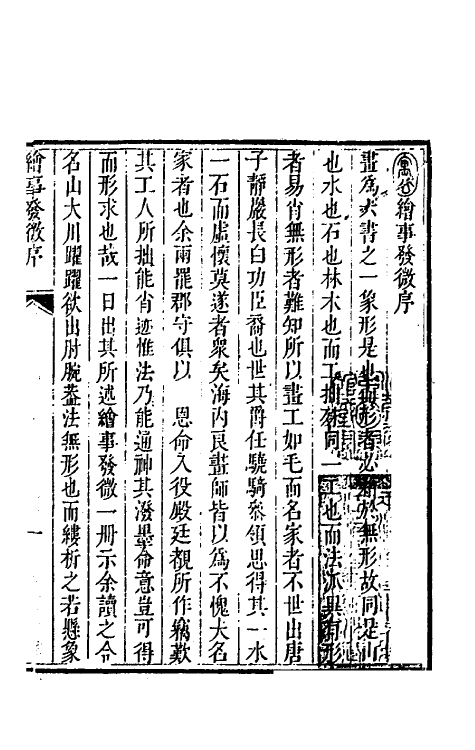 繪事發微序
畫爲六書之一象形是也無形者必
無形故同是山
也水也石也林木也而工拙不同一工也而法不異有形
者易肖無形者難知所以畫工如毛而名家者不世出唐
子靜巖長白功臣裔也世其爵任驍騎叅領思得其一水
一石而虛懷莫遂者衆矣海内良畫師皆以爲不愧大名
家者也余兩罷郡守俱以　恩命入役殿廷覩所作竊歎
其工人所拙能肖迹惟法乃能通神其潑墨命意豈可得
而形求也哉一日出其所述繪事發微一册示余讀之令
名山大川躍躍欲出肘腕葢法無形也而縷析之若懸象
繪事發微序
一